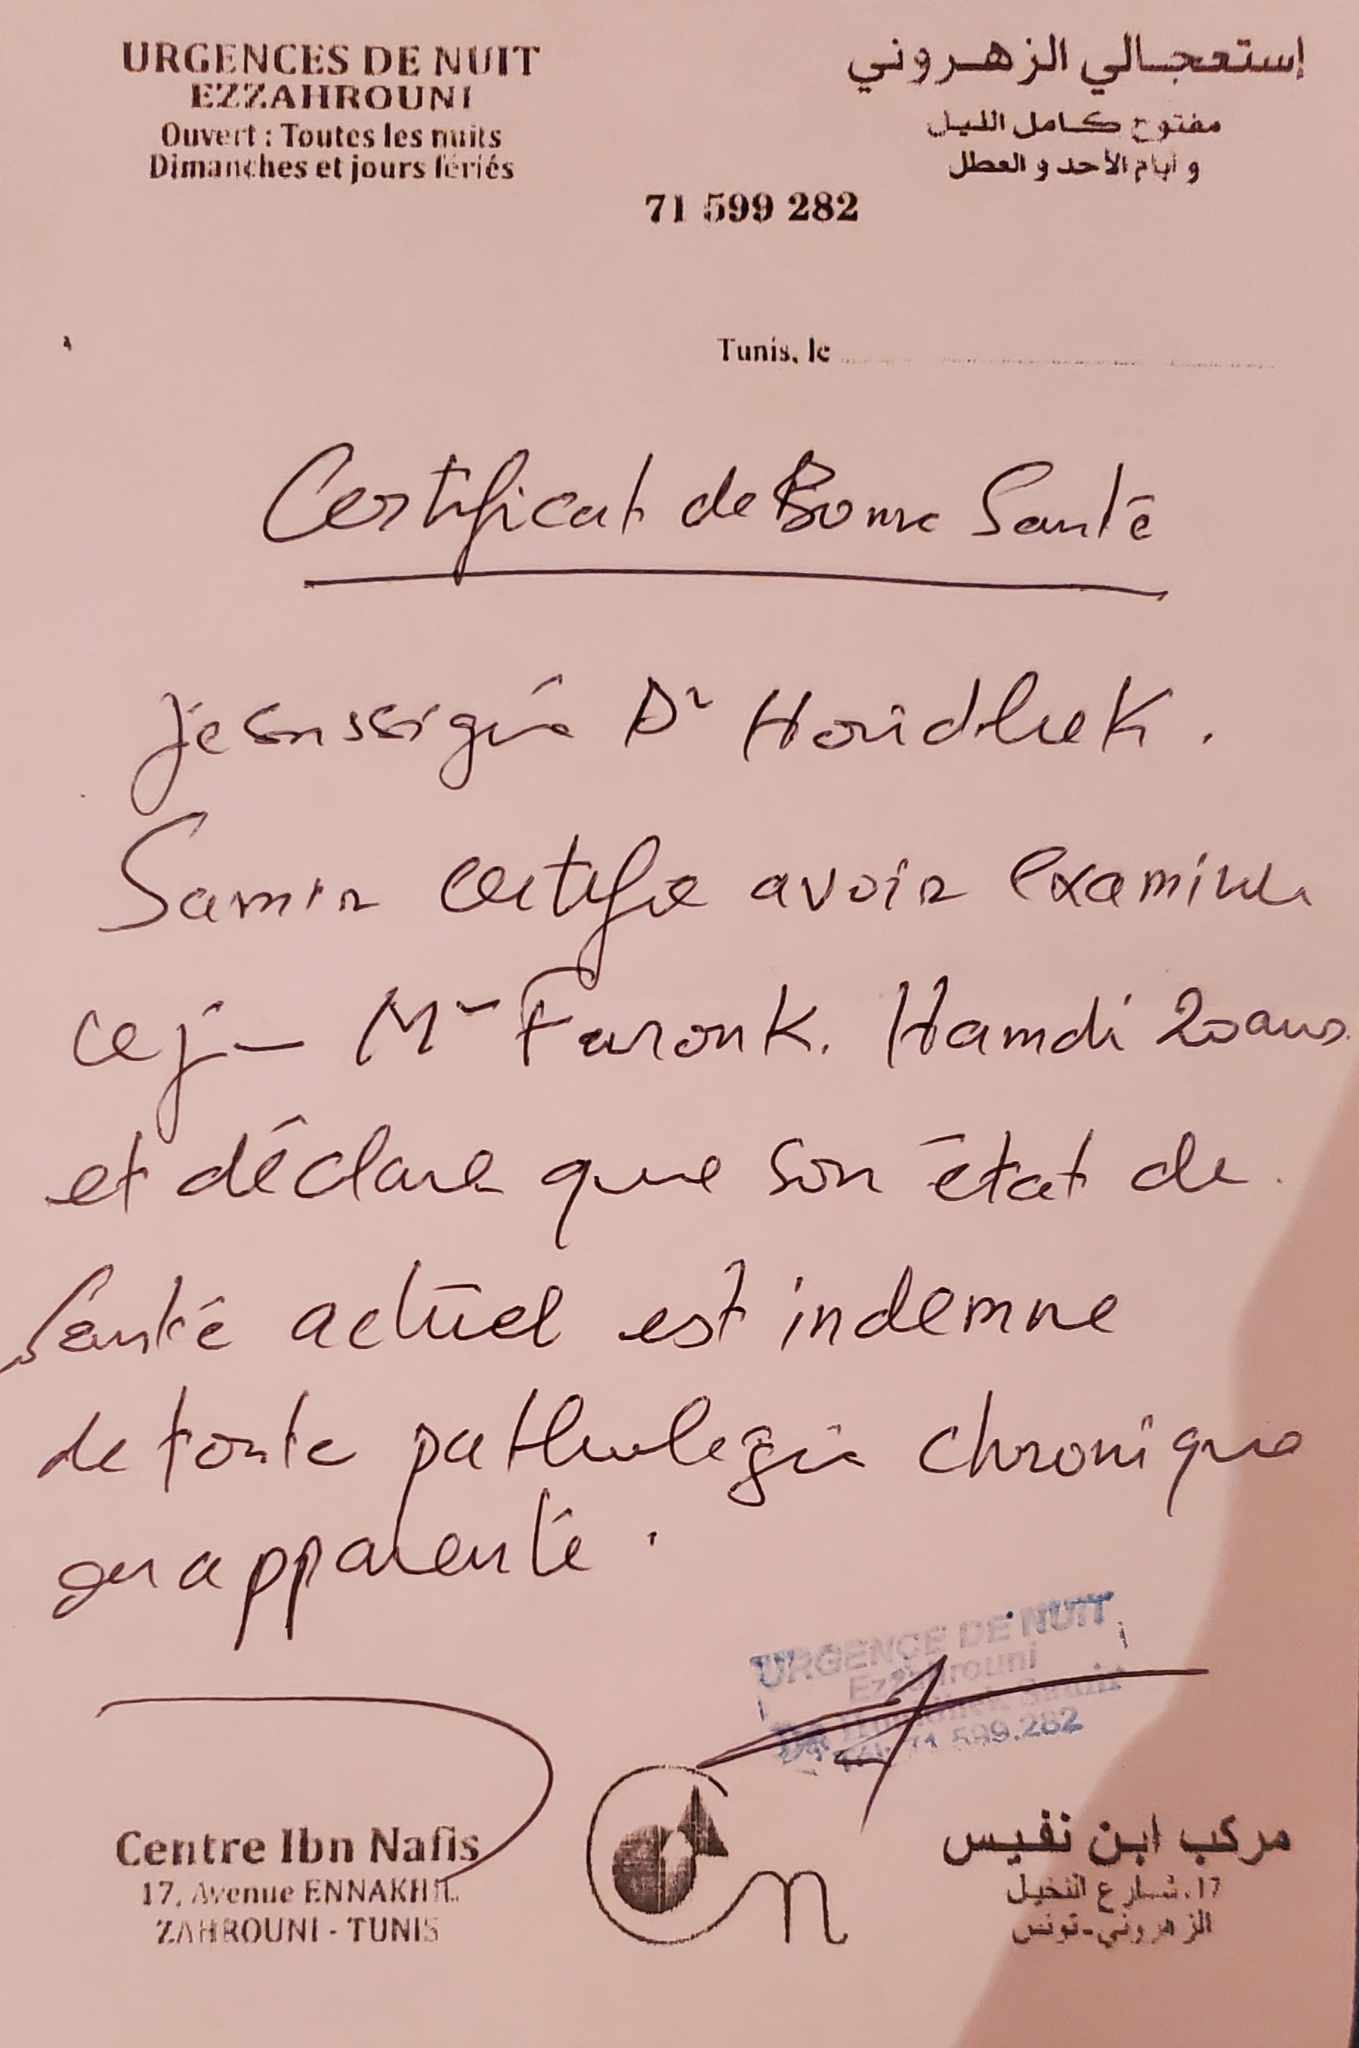 URGENCES DE NUIT
EZZAHROUNI
Ouvert : Toutes les nuits
Dimanches et jours fériés
إستعجالي الزهروني
مفتوح كامل الليل
و أيام الأحد و العطل
71 599 282
Tunis, le
Certificat de Bonne Santé
Je soussigné Dr Houidhek.
Samir certifie avoir examiné
ce j- Mr Farouk. Hamdi 20 ans.
et déclare que son état de
Santé actuel est indemne
de toute pathologie chronique
ou apparenté.
URGENCE DE NUIT
Ezzahrouni
Dr Houidhek Samir
Tél: 71.599.282
Centre Ibn Nafis
17, Avenue ENNAKHIL
ZAHROUNI - TUNIS
مركب ابن نفيس
17، شارع النخيل
الزهروني - تونس